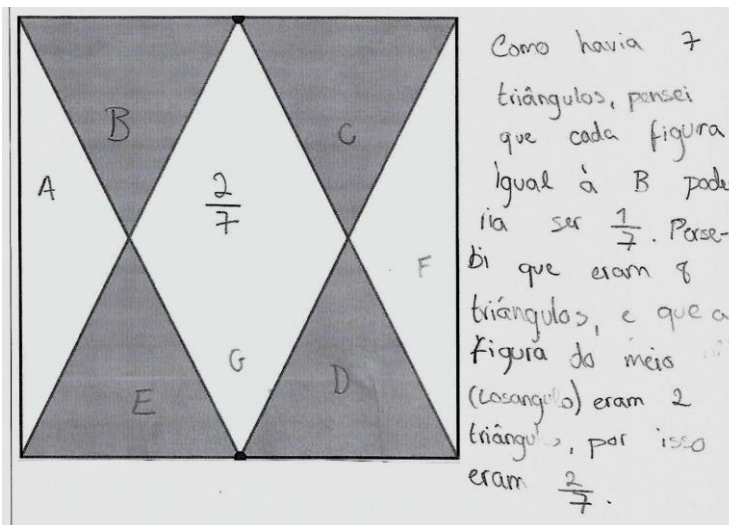 Como havia 7
triângulos, pensei
que cada figura
igual à B pode
ria ser 1/7. Perse-
bi que eram 8
triángulos, e que a
figura do meio
(Losangulo) eram 2
triângulos, por isso
eram 2/7.
B
C
A
2/7
F
G
E
D